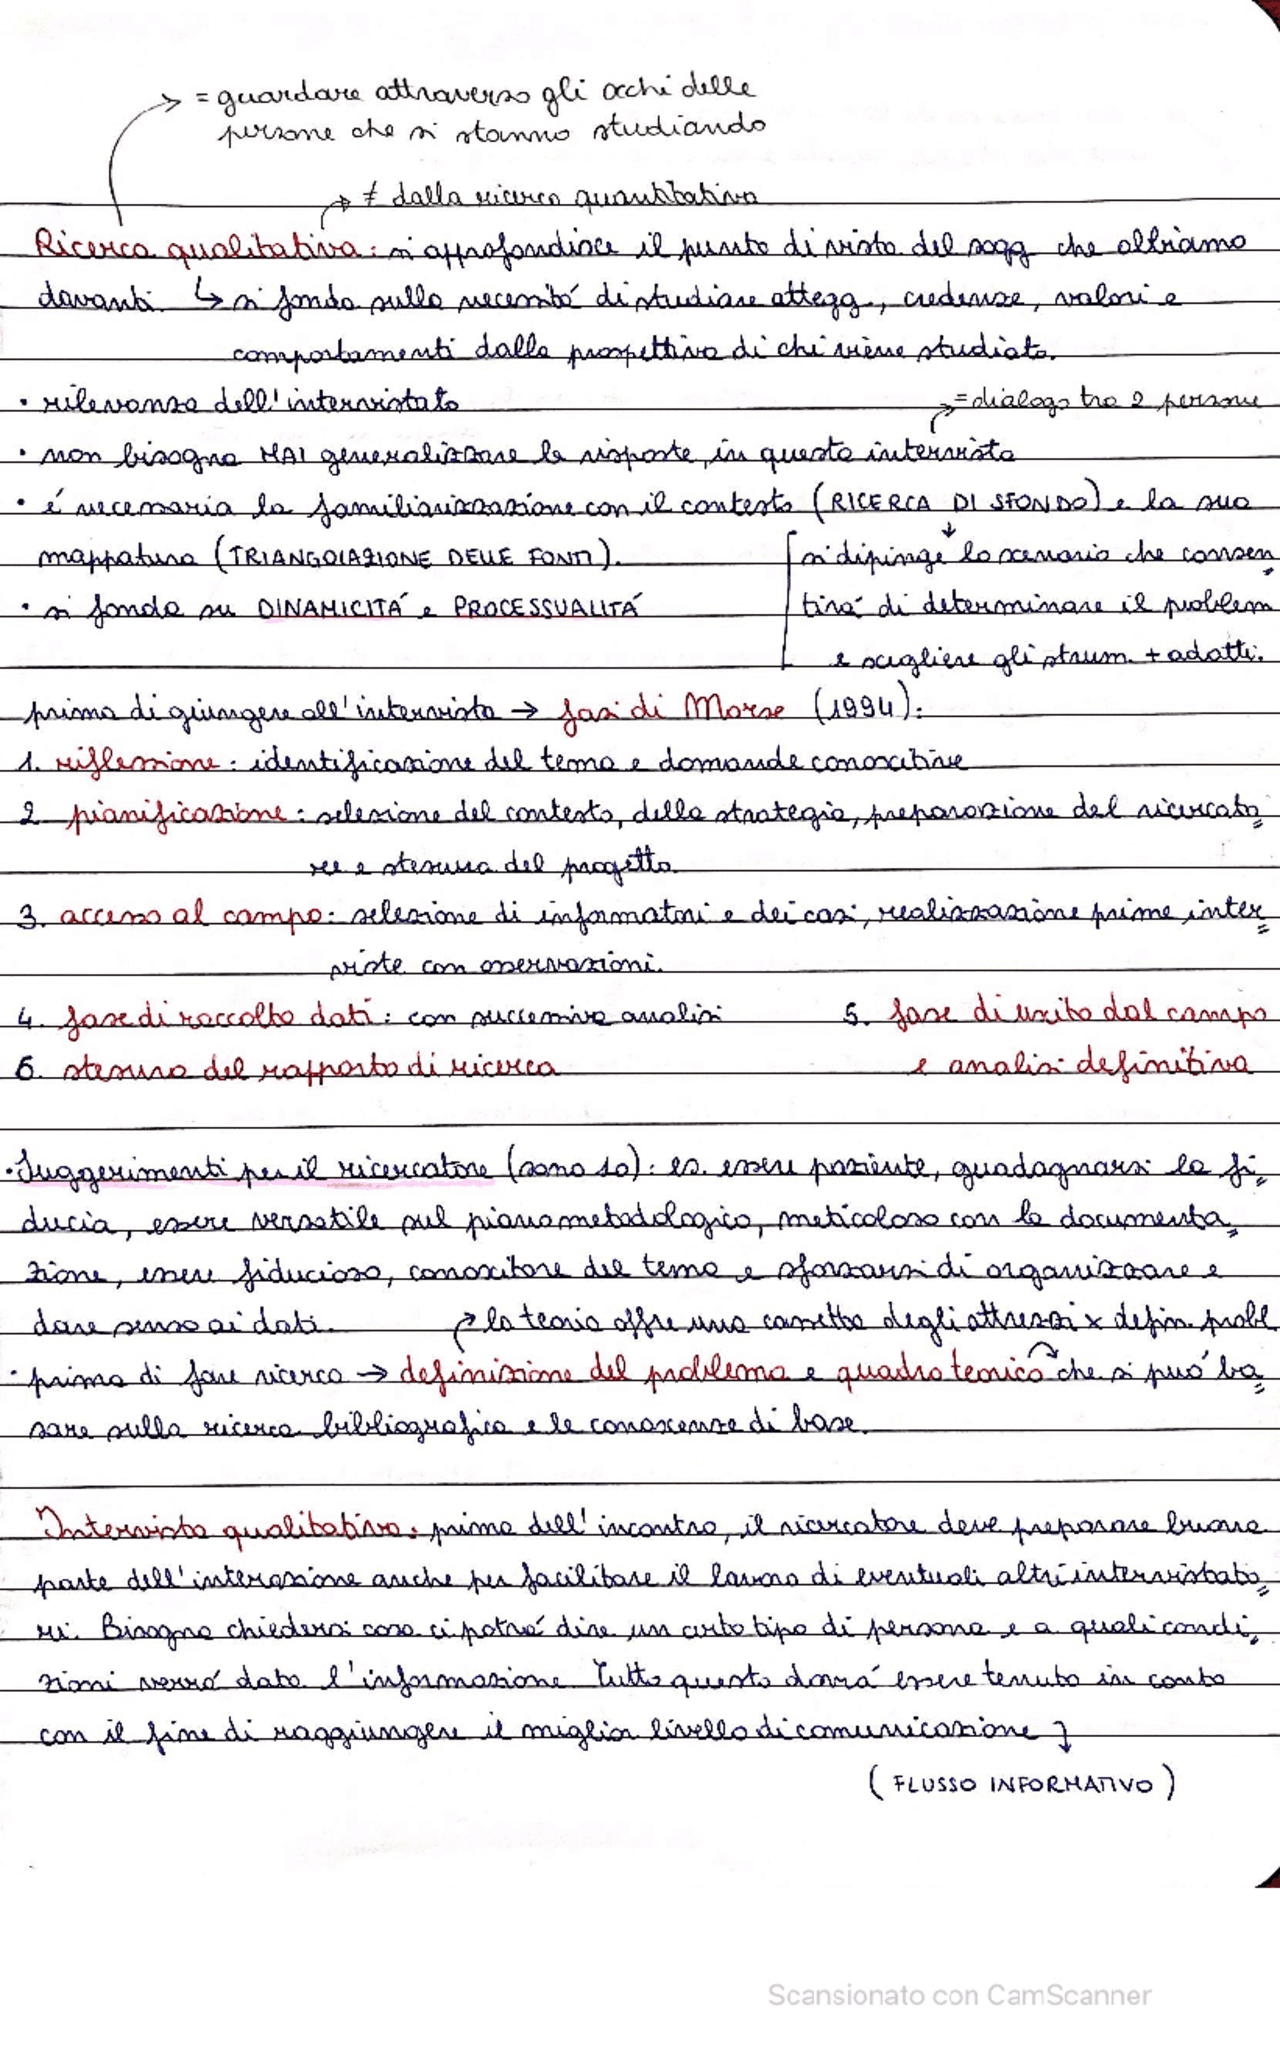 = guardare attraverso gli occhi delle
persone che si stanno studiando
≠ dalla ricerca quantitativa
Ricerca qualitativa: si approfondisce il punto di vista del sogg che abbiamo
davanti. ↳ si fonda sulla necessitá di studiare attegg., credenze, valori e
comportamenti dalla prospettiva di chi viene studiato.
• rilevanza dell'intervistato
= dialogo tra 2 persone
• non bisogna MAI generalizzare le risposte, in questa intervista
• é necessaria la familiarizzazione con il contesto (RICERCA DI SFONDO) e la sua
mappatura (TRIANGOLAZIONE DELLE FONTI).
si dipinge lo scenario che consen=
• si fonda su DINAMICITÁ e PROCESSUALITÁ
tirá di determinare il problem
e scegliere gli strum. + adatti.
prima di giungere all'intervista → fasi di Morse (1994):
1. riflessione: identificazione del tema e domande conoscitive
2 pianificazione: selezione del contesto, della strategia, preparazione del ricercato=
re e stesura del progetto.
3. accesso al campo: selezione di informatori e dei casi, realizzazione prime inter=
viste con osservazioni.
4. fase di raccolta dati: con successiva analisi 5. fase di uscita dal campo
6. stesura del rapporto di ricerca e analisi definitiva
• Suggerimenti per il ricercatore (sono 10): es. essere paziente, guadagnarsi la fi=
ducia, essere versatile sul piano metodologico, meticoloso con la documenta=
zione, essere fiducioso, conoscitore del tema e sforzarsi di organizzare e
dare senso ai dati. la teoria offre una cassetta degli attrezzi x defin. probl
• prima di fare ricerca → definizione del problema e quadro teorico che si puó ba=
sare sulla ricerca bibliografica e le conoscenze di base.
Intervista qualitativa: prima dell'incontro, il ricercatore deve preparare buona
parte dell'interazione anche per facilitare il lavoro di eventuali altri intervistato=
ri. Bisogna chiedersi cosa ci potrá dire un certo tipo di persona e a quali condi=
zioni verrá data l'informazione. Tutto questo dovrá essere tenuto in conto
con il fine di raggiungere il miglior livello di comunicazione
(FLUSSO INFORMATIVO)
Scansionato con CamScanner